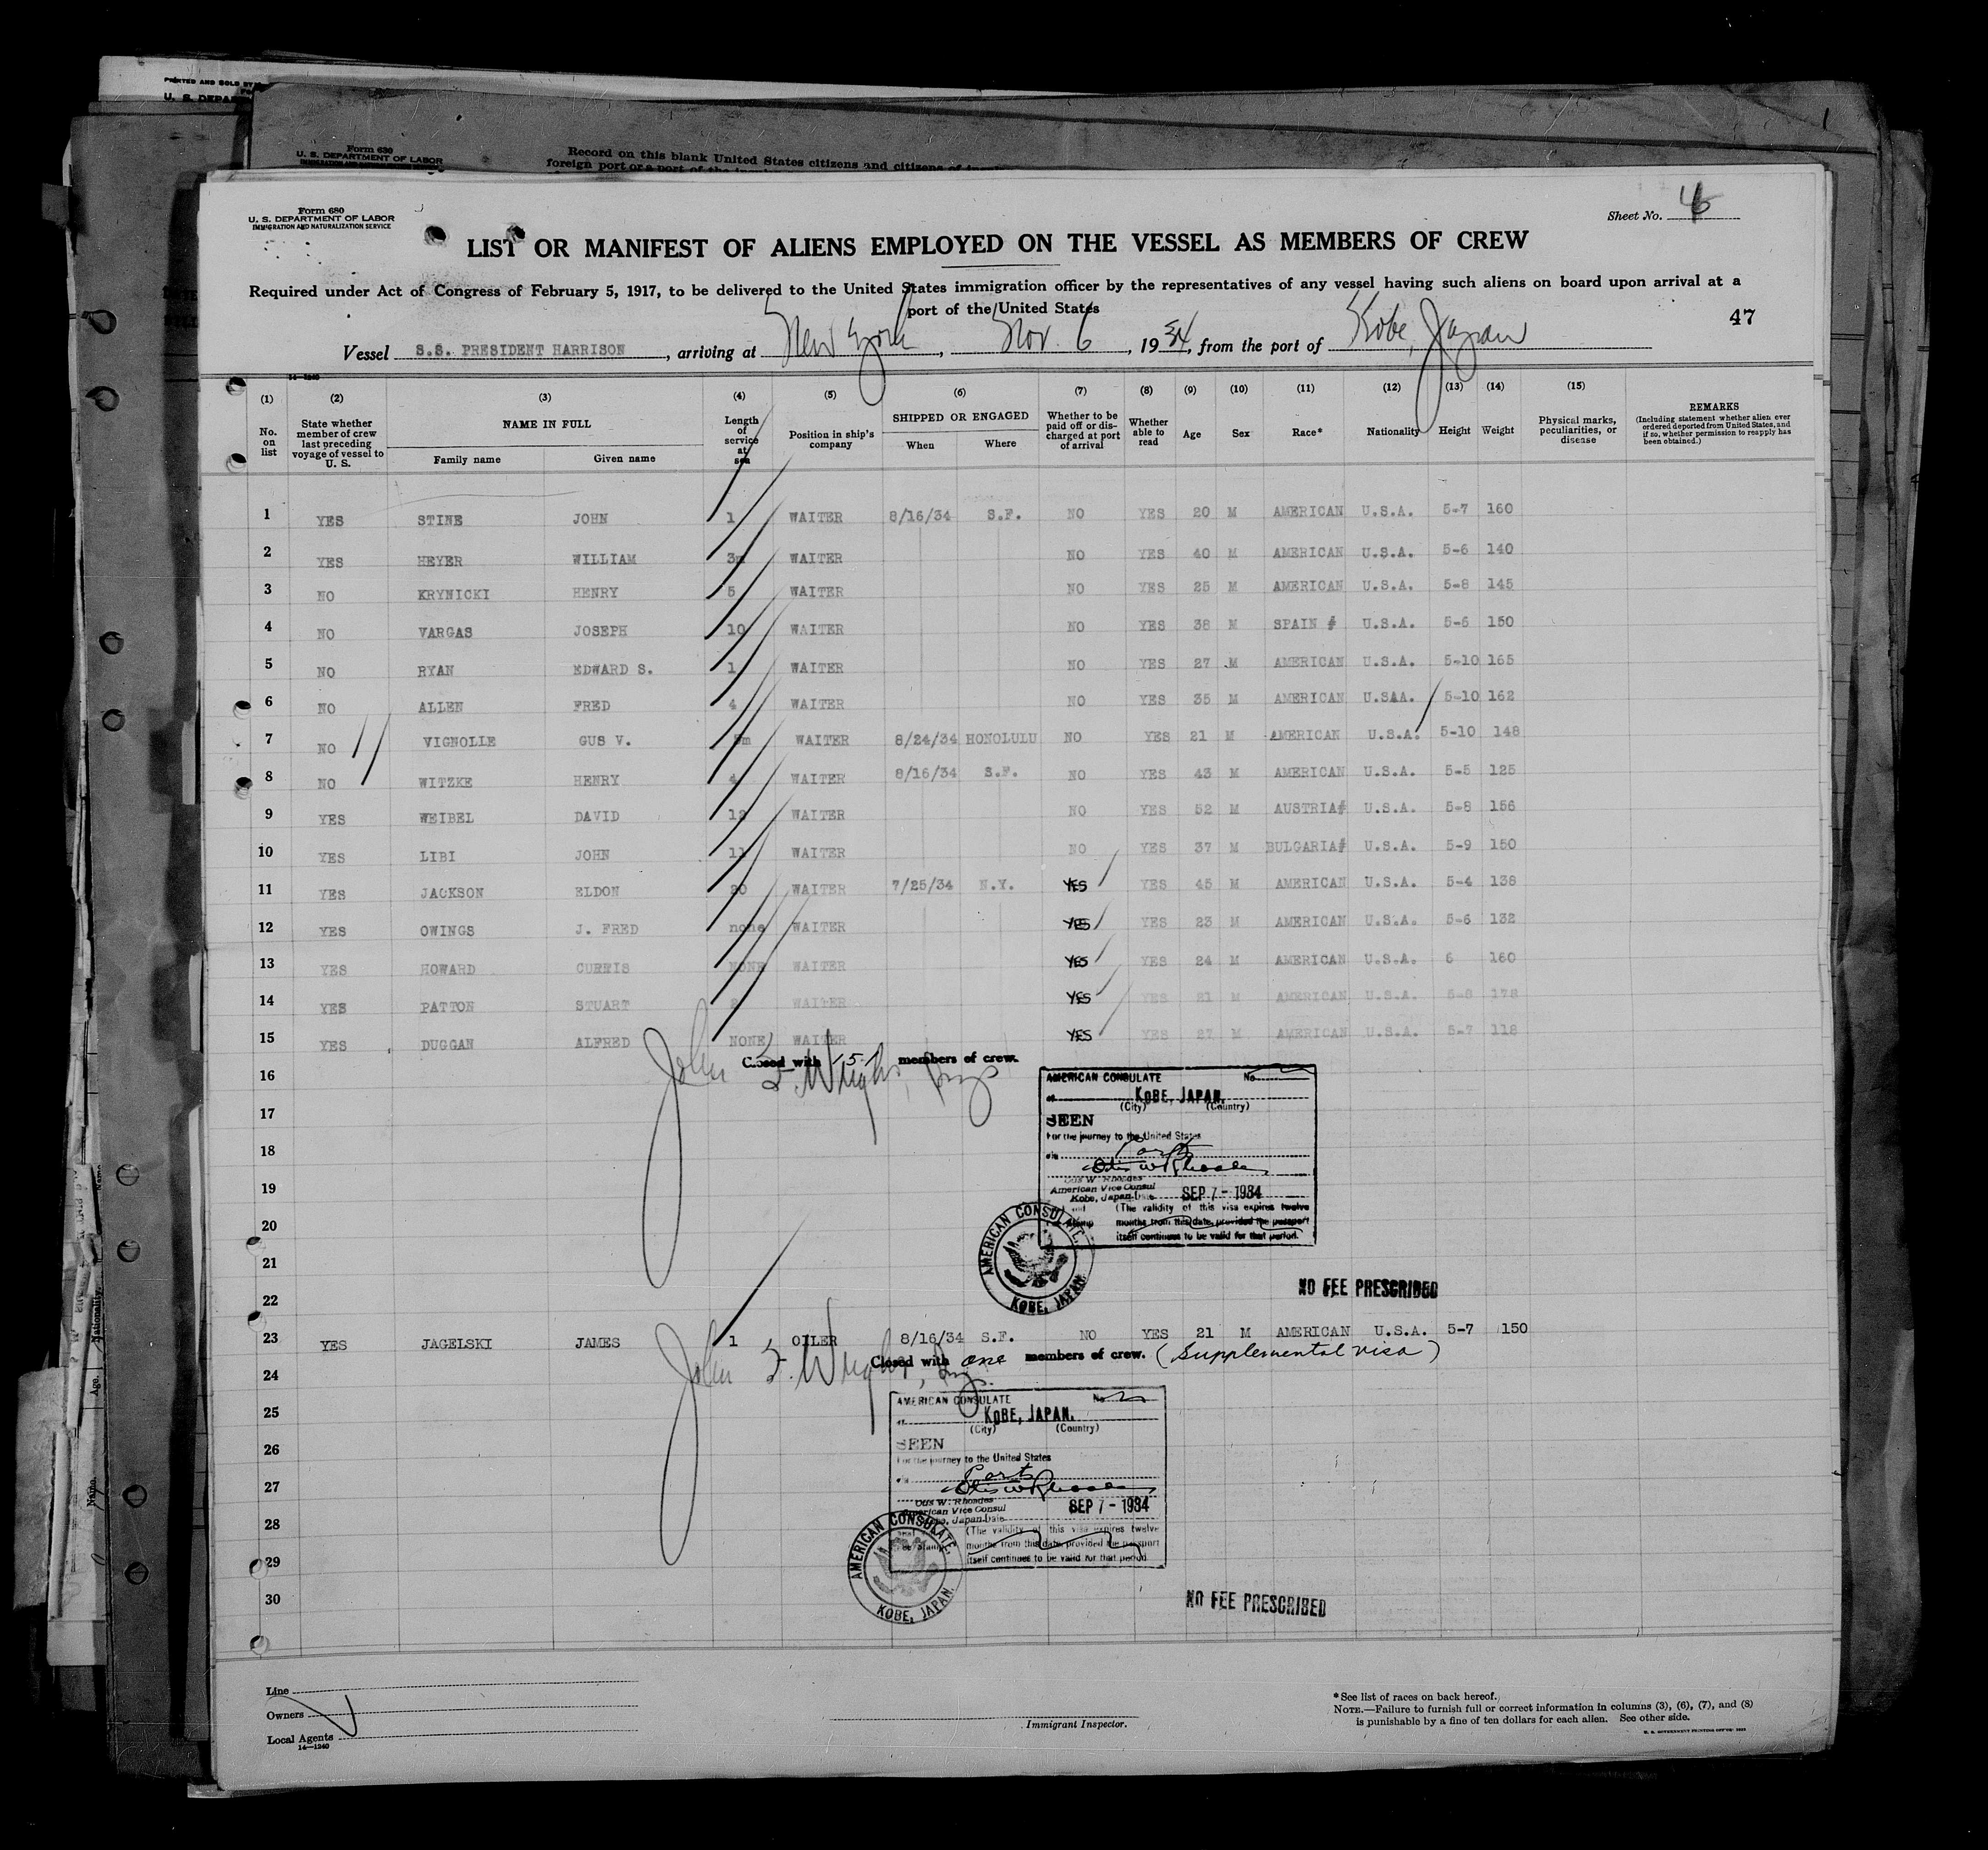 PRINTED AND SOLD BY
U. S. DEPAR
Form 630
U. S. DEPARTMENT OF LABOR
IMMIGRATION AND NATURALIZATION SERVICE
Record on this blank United States citizens and citizens of
foreign port or a port of the
Form 680
U. S. DEPARTMENT OF LABOR
IMMIGRATION AND NATURALIZATION SERVICE
Sheet No.
LIST OR MANIFEST OF ALIENS EMPLOYED ON THE VESSEL AS MEMBERS OF CREW
Required under Act of Congress of February 5, 1917, to be delivered to the United States immigration officer by the representatives of any vessel having such aliens on board upon arrival at a
port of the United States
47
Vessel S.S. PRESIDENT HARRISON, arriving at New York, Nov. 6, 1934, from the port of Kobe, Japan
14—1240
(1) (2) (3) (4) (5) (6) (7) (8) (9) (10) (11) (12) (13) (14) (15)
No. on list
State whether member of crew last preceding voyage of vessel to U. S.
NAME IN FULL
Family name Given name
Length of service at sea
Position in ship's company
SHIPPED OR ENGAGED
When Where
Whether to be paid off or discharged at port of arrival
Whether able to read
Age
Sex
Race*
Nationality
Height
Weight
Physical marks, peculiarities, or disease
REMARKS
(Including statement whether alien ever ordered deported from United States, and if so, whether permission to reapply has been obtained.)
1 YES STINE JOHN 1 WAITER 8/16/34 S.F. NO YES 20 M AMERICAN U.S.A. 5-7 160
2 YES HEYER WILLIAM 3m WAITER NO YES 40 M AMERICAN U.S.A. 5-6 140
3 NO KRYNICKI HENRY 5 WAITER NO YES 25 M AMERICAN U.S.A. 5-8 145
4 NO VARGAS JOSEPH 10 WAITER NO YES 38 M SPAIN # U.S.A. 5-6 150
5 NO RYAN EDWARD S. 1 WAITER NO YES 27 M AMERICAN U.S.A. 5-10 165
6 NO ALLEN FRED 4 WAITER NO YES 35 M AMERICAN U.SAA. 5-10 162
7 NO VIGNOLLE GUS V. WAITER 8/24/34 HONOLULU NO YES 21 M AMERICAN U.S.A. 5-10 148
8 NO WITZKE HENRY 4 WAITER 8/16/34 S.F. NO YES 43 M AMERICAN U.S.A. 5-5 125
9 YES WEIBEL DAVID 12 WAITER NO YES 52 M AUSTRIA# U.S.A. 5-8 156
10 YES LIBI JOHN 11 WAITER NO YES 37 M BULGARIA# U.S.A. 5-9 150
11 YES JACKSON ELDON 20 WAITER 7/25/34 N.Y. YES YES 45 M AMERICAN U.S.A. 5-4 138
12 YES OWINGS J. FRED none WAITER YES YES 23 M AMERICAN U.S.A. 5-6 132
13 YES HOWARD CURRIS NONE WAITER YES YES 24 M AMERICAN U.S.A. 6 160
14 YES PATTON STUART 2 WAITER YES YES 21 M AMERICAN U.S.A. 5-8 178
15 YES DUGGAN ALFRED NONE WAITER YES YES 27 M AMERICAN U.S.A. 5-7 118
Closed with 15 members of crew.
John F. Wright
16
AMERICAN CONSULATE No
at KOBE, JAPAN.
(City) (Country)
17
SEEN
For the journey to the United States
18
Otis W Rhoades
Otis W. Rhoades
19
American Vice Consul
Kobe, Japan. Date SEP 7 - 1934
(The validity of this visa expires twelve
20
months from this date, provided the passport
itself continues to be valid for that period.
21
AMERICAN CONSULATE, KOBE, JAPAN.
NO FEE PRESCRIBED
22
23 YES JAGELSKI JAMES 1 OILER 8/16/34 S.F. NO YES 21 M AMERICAN U.S.A. 5-7 150
Closed with one members of crew. (Supplemental visa)
John F. Wright
24
AMERICAN CONSULATE No
25
KOBE, JAPAN.
(City) (Country)
26
SEEN
For the journey to the United States
27
Otis W Rhoades
Otis W. Rhoades
American Vice Consul SEP 7 - 1934
Kobe, Japan. Date
28
(The validity of this visa expires twelve
months from this date, provided the passport
29
itself continues to be valid for that period.
AMERICAN CONSULATE, KOBE, JAPAN.
30
NO FEE PRESCRIBED
Line
Owners
Local Agents
14—1240
Immigrant Inspector.
*See list of races on back hereof.
NOTE.—Failure to furnish full or correct information in columns (3), (6), (7), and (8)
is punishable by a fine of ten dollars for each alien. See other side.
U. S. GOVERNMENT PRINTING OFFICE
Name
Nationality.
Age.
Name.